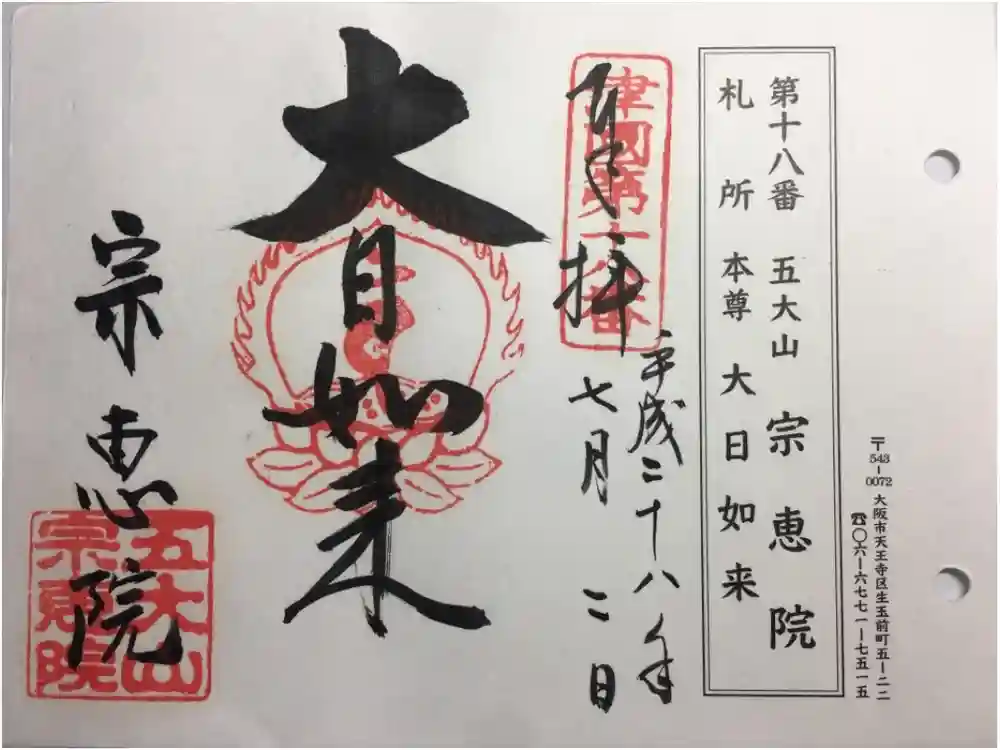 〒543-0072 大阪市天王寺区生玉前町五-二二
☎〇六-六七七一-七五一五
第十八番 五大山 宗恵院
札所 本尊 大日如来
津國第十八番
奉拝
平成二十八年
七月二日
大日如来
宗恵院
五大山
宗恵院